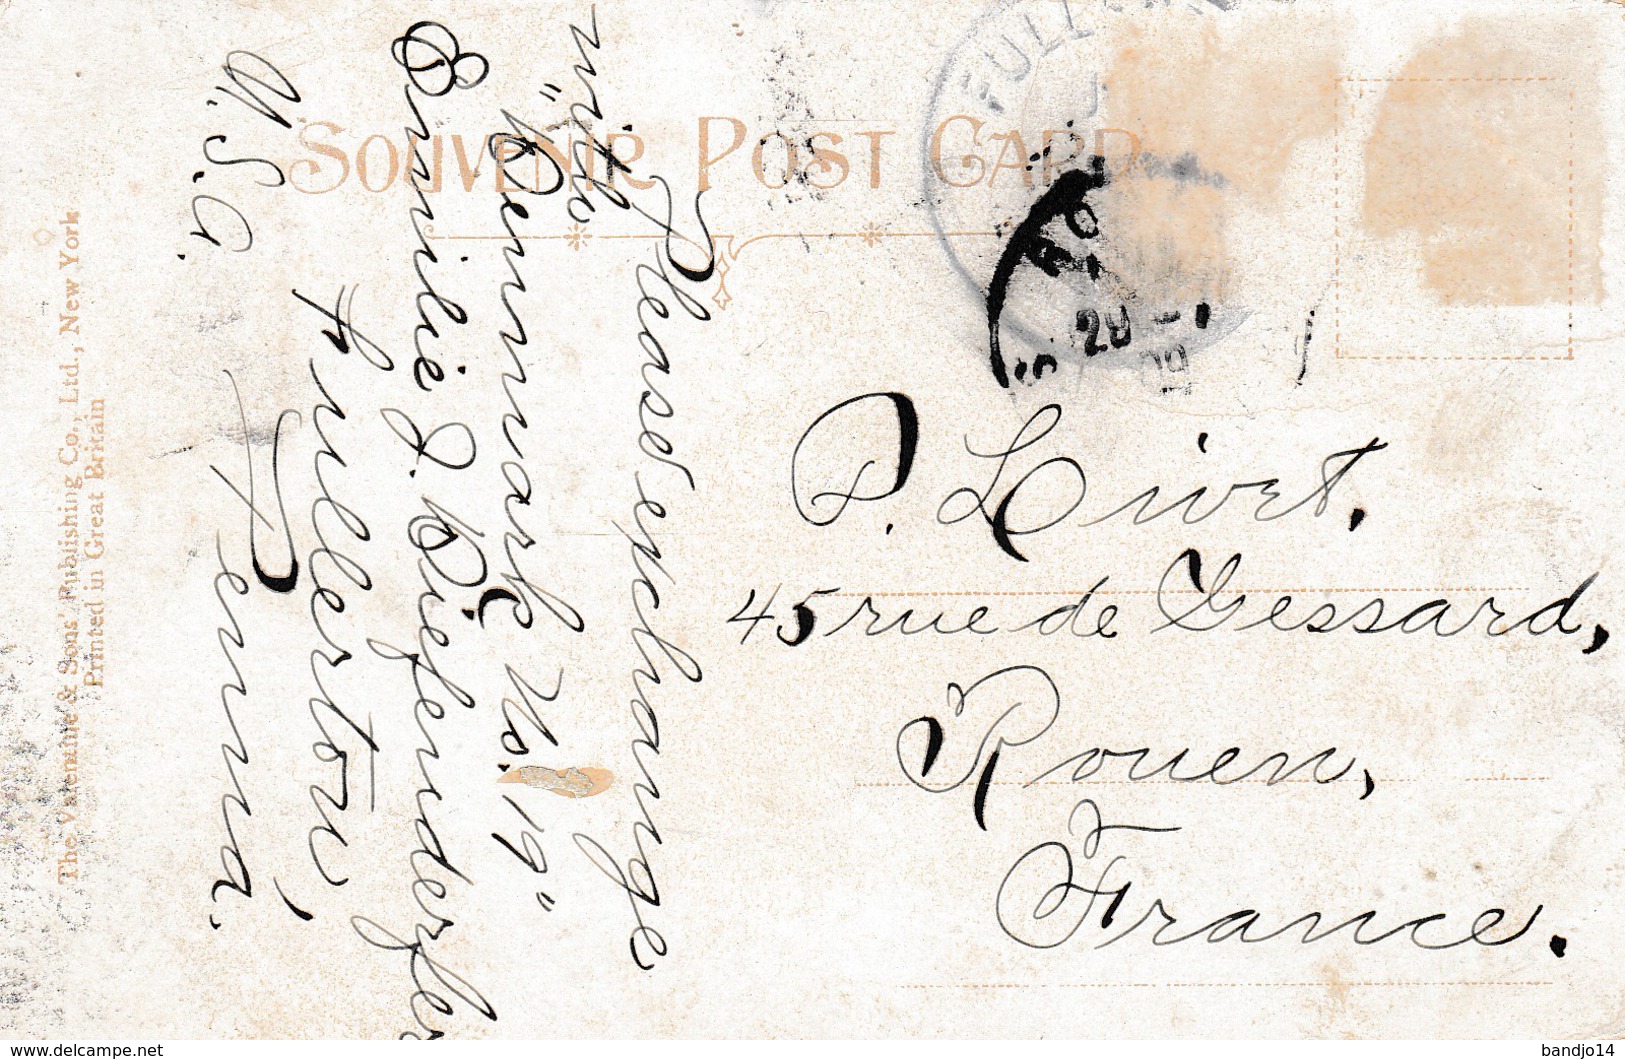 SOUVENIR POST CARD
Please exchange
with
"Denmark No. 19"
Emilie J. Diefenderfer
Fullerton,
Penna.
U.S.A.
P. Livet.
45 rue de Lessard,
Rouen,
France.
28
The Valentine & Sons' Publishing Co., Ltd., New York
Printed in Great Britain
www.delcampe.net
bandjo14